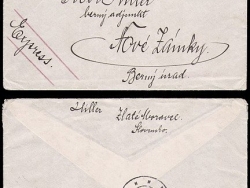 berný adjunkt
Express.
Nové Zámky
Berný úrad
Miller
Zlaté Moravce
Slovensko